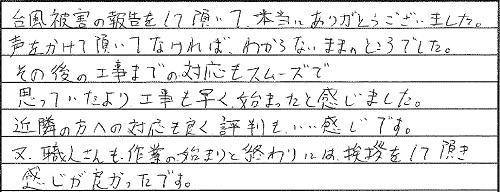 台風被害の報告をして頂いて、本当にありがとうございました。
声をかけて頂いてなければ、わからないままのところでした。
その後の工事までの対応もスムーズで
思っていたより工事も早く、始まったと感じました。
近隣の方への対応も良く評判も、いい感じです。
又、職人さんも、作業の始まりと終わりには、挨拶をして頂き
感じが良かったです。